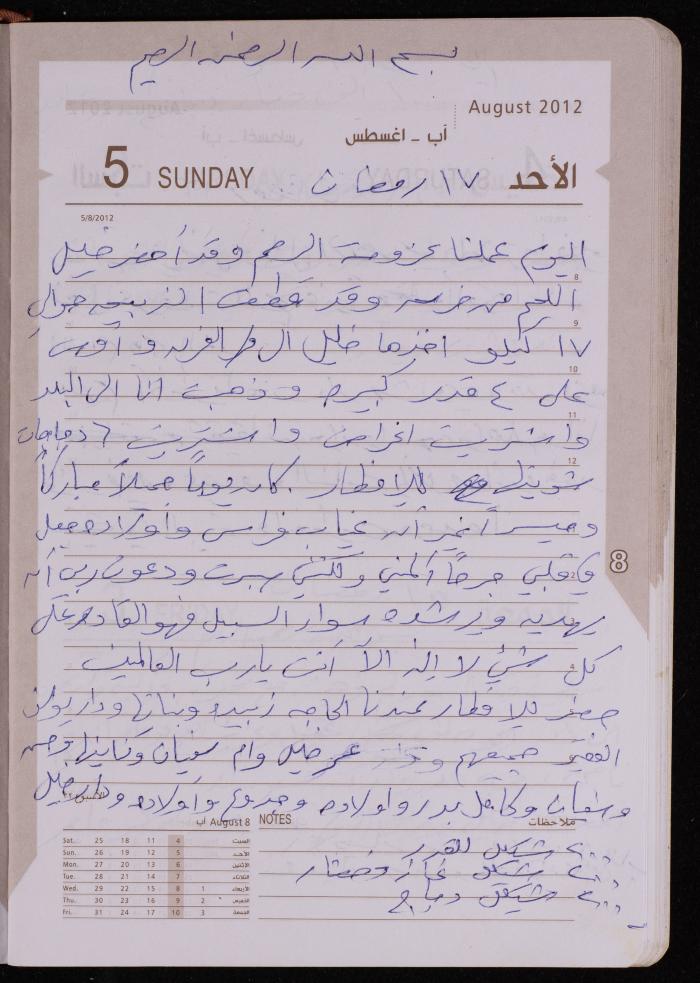 بسم الله الرحمن الرحيم
August 2012
آب - اغسطس
5 SUNDAY ١٧ رمضان الأحد
5/8/2012
اليوم عملنا عزومة الرحم وقد أحضر خليل
اللحم من وقد قطفت الذبيحه حوالي
١٧ كيلو اخذها خليل الى الفرن و
على ٤ قدر كبيره وذهبت انا الى البلد
واشتريت اغراض واشتريت ٦ دجاجات
شويتها للافطار. كان يوماً جميلاً مباركاً
أن غياب فراس وأولاده جعل
في قلبي جرحاً ألمني ولكنني صبرت ودعوت ربي أن
يهديه ويرشده سواء السبيل فهو القادر على
كل شيء لا إله الا أنت يا رب العالمين
حضر للافطار عندنا الحاجه زبيده وبناتها ودار
جميعهم خليل وام سفيان وكناينها
وسفيان وكامل بدر واولاده وجدوع واولاده خليل
8
August 8 آب
Sat. 25 18 11 4 السبت
Sun. 26 19 12 5 الأحد
Mon. 27 20 13 6 الاثنين
Tue. 28 21 14 7 الثلاثاء
Wed. 29 22 15 8 1 الأربعاء
Thu. 30 23 16 9 2 الخميس
Fri. 31 24 17 10 3 الجمعة
NOTES ملاحظات
شيكل للقدر
شيكل غاز وخضار
شيكل دجاج